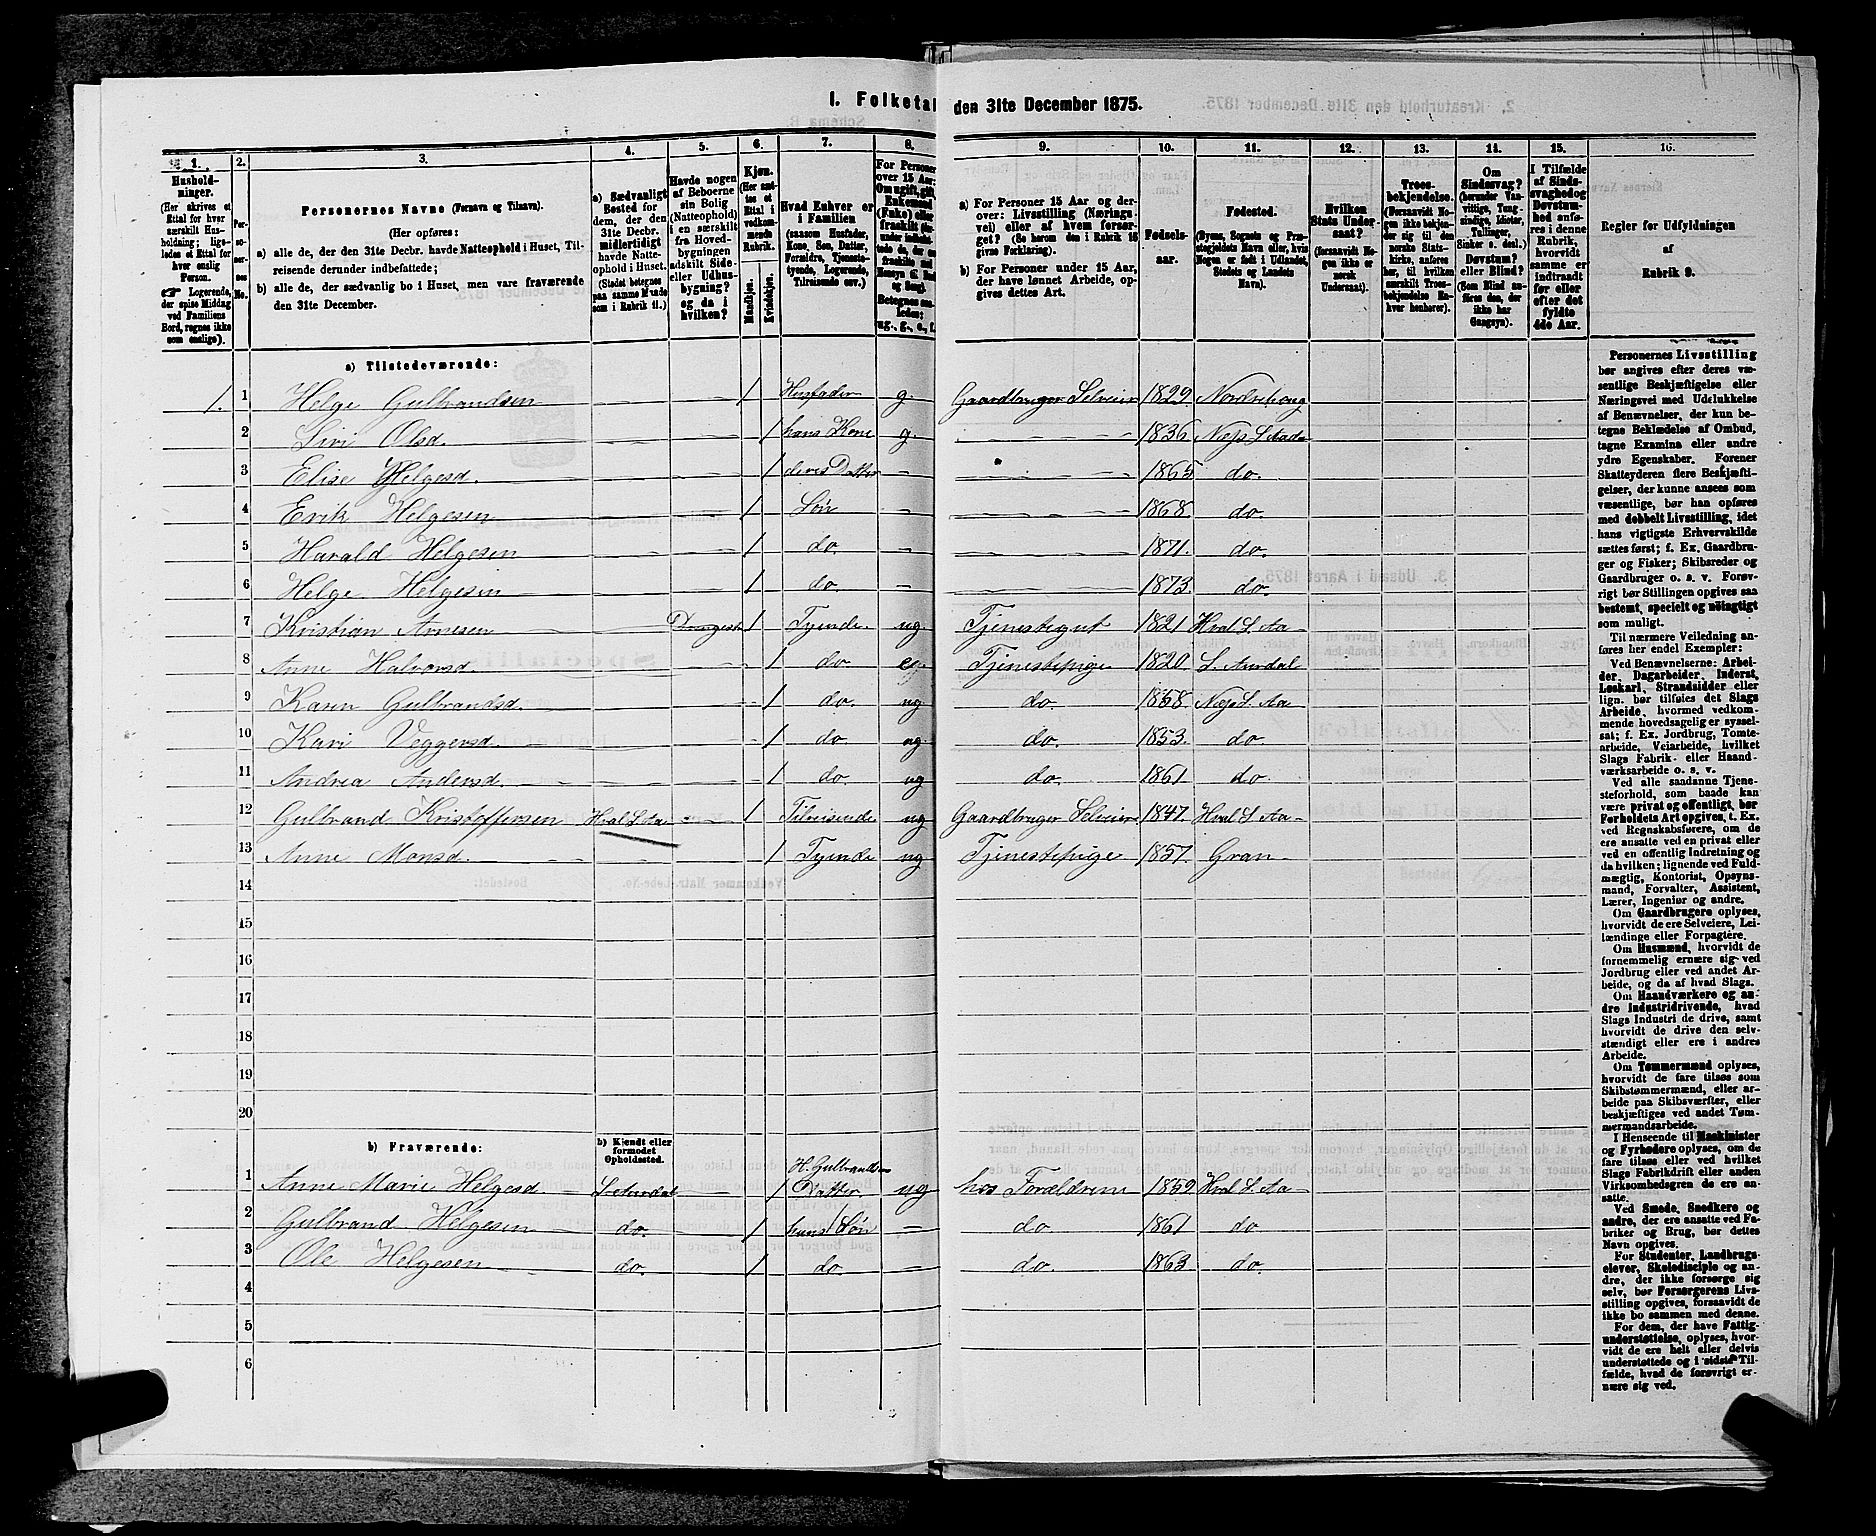 I. Folketal den 31te December 1875.
1. 2. 3. 4. 5. 6. 7. 8. 9. 10. 11. 12. 13. 14. 15. 16.
Hushold-
ninger.
(Her skrives et
Ettal for hver
særskilt Hus-
holdning; lige-
ledes et Ettal for
hver enslig
Person.
☞ Logerende,
der spise Middag
ved Familiens
Bord, regnes ikke
som enslige).
Per-
so-
ner-
nes
No.
Personernes Navne (Fornavn og Tilnavn).
(Her opføres:
a) alle de, der den 31te Decbr. havde Natteophold i Huset, Til-
reisende derunder indbefattede;
b) alle de, der sædvanlig bo i Huset, men vare fraværende
den 31te December.
a) Sædvanligt
Bosted for
dem, der den
31te Decbr.
midlertidigt
havde Natte-
ophold i Huset.
(Stedet betegnes
paa samme Maade
som i Rubrik 11.)
Havde nogen
af Beboerne
sin Bolig
(Natteophold)
i en særskilt
fra Hoved-
bygningen
adskilt Side-
eller Udhus-
bygning?
og da i
hvilken?
Kjøn.
(Her sæt-
tes et
Ettal i
vedkom-
mende
Rubrik.
Mandkjøn.
Kvindekjøn.
Hvad Enhver er
i Familien
(saasom Husfader,
Kone, Søn, Datter,
Forældre, Tjeneste-
tyende, Logerende,
Tilreisende osv.)
For Personer
over 15 Aar:
Om ugift, gift,
Enkemand
(Enke) eller
fraskilt
Betegnes saa-
ledes:
ug., g., e., f.
a) For Personer 15 Aar og der-
over: Livsstilling (Nærings-
vei) eller af hvem forsør-
get? (Se herom den i Rubrik 16
givne Forklaring).
b) For Personer under 15 Aar,
der have lønnet Arbeide, op-
gives dettes Art.
Fødsels-
aar.
Fødested.
(Byens, Sognets og Præ-
stegjeldets Navn eller, hvis
Nogen er født i Udlandet,
Stedets og Landets
Navn).
Hvilken
Stats Under-
saat?
(forsaavidt No-
gen ikke er
norsk
Undersaat).
Troes-
bekjendelse.
(Forsaavidt No-
gen ikke bekjen-
der sig til den
norske Stats-
kirke, anføres
her, til hvilken
særskilt Troes-
bekjendelse En-
hver henhører).
Om
Sindssvag?
(herunder Van-
vittige, Tung-
sindige, Idioter,
Tullinger,
Sinker o. desl.)
Døvstum?
eller Blind?
(Som Blind an-
føres den, der
ikke har
Gangsyn).
I Tilfælde
af Sinds-
svaghed og
Døvstum-
hed anfø-
res i denne
Rubrik,
hvorvidt
samme er
indtraadt
før eller
efter det
fyldte
4de Aar.
Regler for Udfyldningen
af
Rubrik 9.
a) Tilstedeværende:
1. 1 Helge Gulbrandsen 1 Husfader g. Gaardbruger Selveier 1829 Nordrehong
2 Siri Olsd. 1 hans Kone g. 1836 Næs S. Aada
3 Elise Helgesd. 1 deres Datter 1865 do.
4 Erik Helgesen 1 Søn 1868 do.
5 Harald Helgesen 1 do. 1871. do.
6 Helge Helgesen 1 do. 1873. do.
7 Kristian Arnesen 1 Tyende. ug. Tjenestegut 1821 Hval S. Aa
8 Anne Halvorsd. 1 do. Tjenestepige 1820 S. Aurdal
9 Karen Gulbrandsd. 1 do. ug. do. 1858 Næs S. Aa
10 Kari Veggersd. 1 do. ug. do. 1853. do.
11 Andrea Andersd. 1 do. ug do. 1861 do
12 Gulbrand Kristoffersen Hval S. Aa 1 Tilreisende ug Gaardbruger Selveier 1847. Hval S. Aa
13 Anne Monsd. 1 Tyende ug Tjenestepige 1857. Gran
14
15
16
17
18
19
20
b) Fraværende:
b) Kjendt eller
formodet
Opholdssted.
1 Anne Marie Helgesd. S. Aurdal 1 H. Gulbrands Datter ug hos Forældrene 1859 Hval S. Aa
2 Gulbrand Helgesen do. 1 hans Søn do 1861 do
3 Ole Helgesen do. 1 do do. 1863 do.
4
5
6
Personernes Livsstilling
bør angives efter deres væ-
sentlige Beskjæftigelse eller
Næringsvei med Udelukkelse
af Benævnelser, der kun be-
tegne Beklædelse af Ombud,
tagne Examina eller andre
ydre Egenskaber. Forener
Skatteyderen flere Beskjæfti-
gelser, der kunne ansees som
væsentlige, bør han opføres
med dobbelt Livsstilling, idet
hans vigtigste Erhvervskilde
sættes først; f. Ex. Gaardbru-
ger og Fisker; Skibsreder og
Gaardbruger o. s. v. Forøv-
rigt bør Stillingen opgives saa
bestemt, specielt og nøiagtigt
som muligt.
Til nærmere Veiledning an-
føres her endel Exempler:
Ved Benævnelserne: Arbei-
der, Dagarbeider, Inderst,
Løskarl, Strandsidder eller
lign. bør tilføies det Slags
Arbeide, hvormed vedkom-
mende hovedsagelig er syssel-
sat; f. Ex. Jordbrug, Tomte-
arbeide, Veiarbeide, hvilket
Slags Fabrik- eller Haand-
værksarbeide o. s. v.
Ved alle saadanne Tjene-
steforhold, som baade kan
være privat og offentligt, bør
Forholdets Art opgives, f. Ex.
ved Regnskabsførere, om de
ere ansatte ved en privat eller
ved en offentlig Indretning og
da hvilken; lignende ved Fuld-
mægtig, Kontorist, Opsyns-
mand, Forvalter, Assistent,
Lærer, Ingeniør og andre.
Om Gaardbrugere oplyses,
hvorvidt de ere Selveiere, Lei-
lændinge eller Forpagtere.
Om Husmænd, hvorvidt de
fornemmelig ernære sig ved
Jordbrug eller ved andet Ar-
beide, og da af hvad Slags.
Om Haandværkere og an-
dre Industridrivende, hvad
Slags Industri de drive, samt
hvorvidt de drive den selv-
stændigt eller ere i andres
Arbeide.
Om Tømmermænd oplyses,
hvorvidt de fare tilsøs som
Skibstømmermænd, eller ar-
beide paa Skibsværfter, eller
beskjæftiges ved andet Tøm-
mermandsarbeide.
I Henseende til Maskinister
og Fyrbødere oplyses, om de
fare tilsøs eller ved hvilket
Slags Fabrikdrift eller anden
Virksomhedsgren de ere an-
satte.
Ved Smede, Snedkere og
andre, der ere ansatte ved Fa-
briker og Brug, bør dettes
Navn opgives.
For Studenter, Landbrugs-
elever, Skoledisciple og an-
dre, der ikke forsørge sig
selv, bør Forsørgerens Livs-
stilling opgives, forsaavidt de
ikke bo sammen med denne.
For dem, der have Fattig-
understøttelse, oplyses, hvor-
vidt de ere helt eller delvis
understøttede og i sidste Til-
fælde, hvad de forøvrigt er-
nære sig ved.